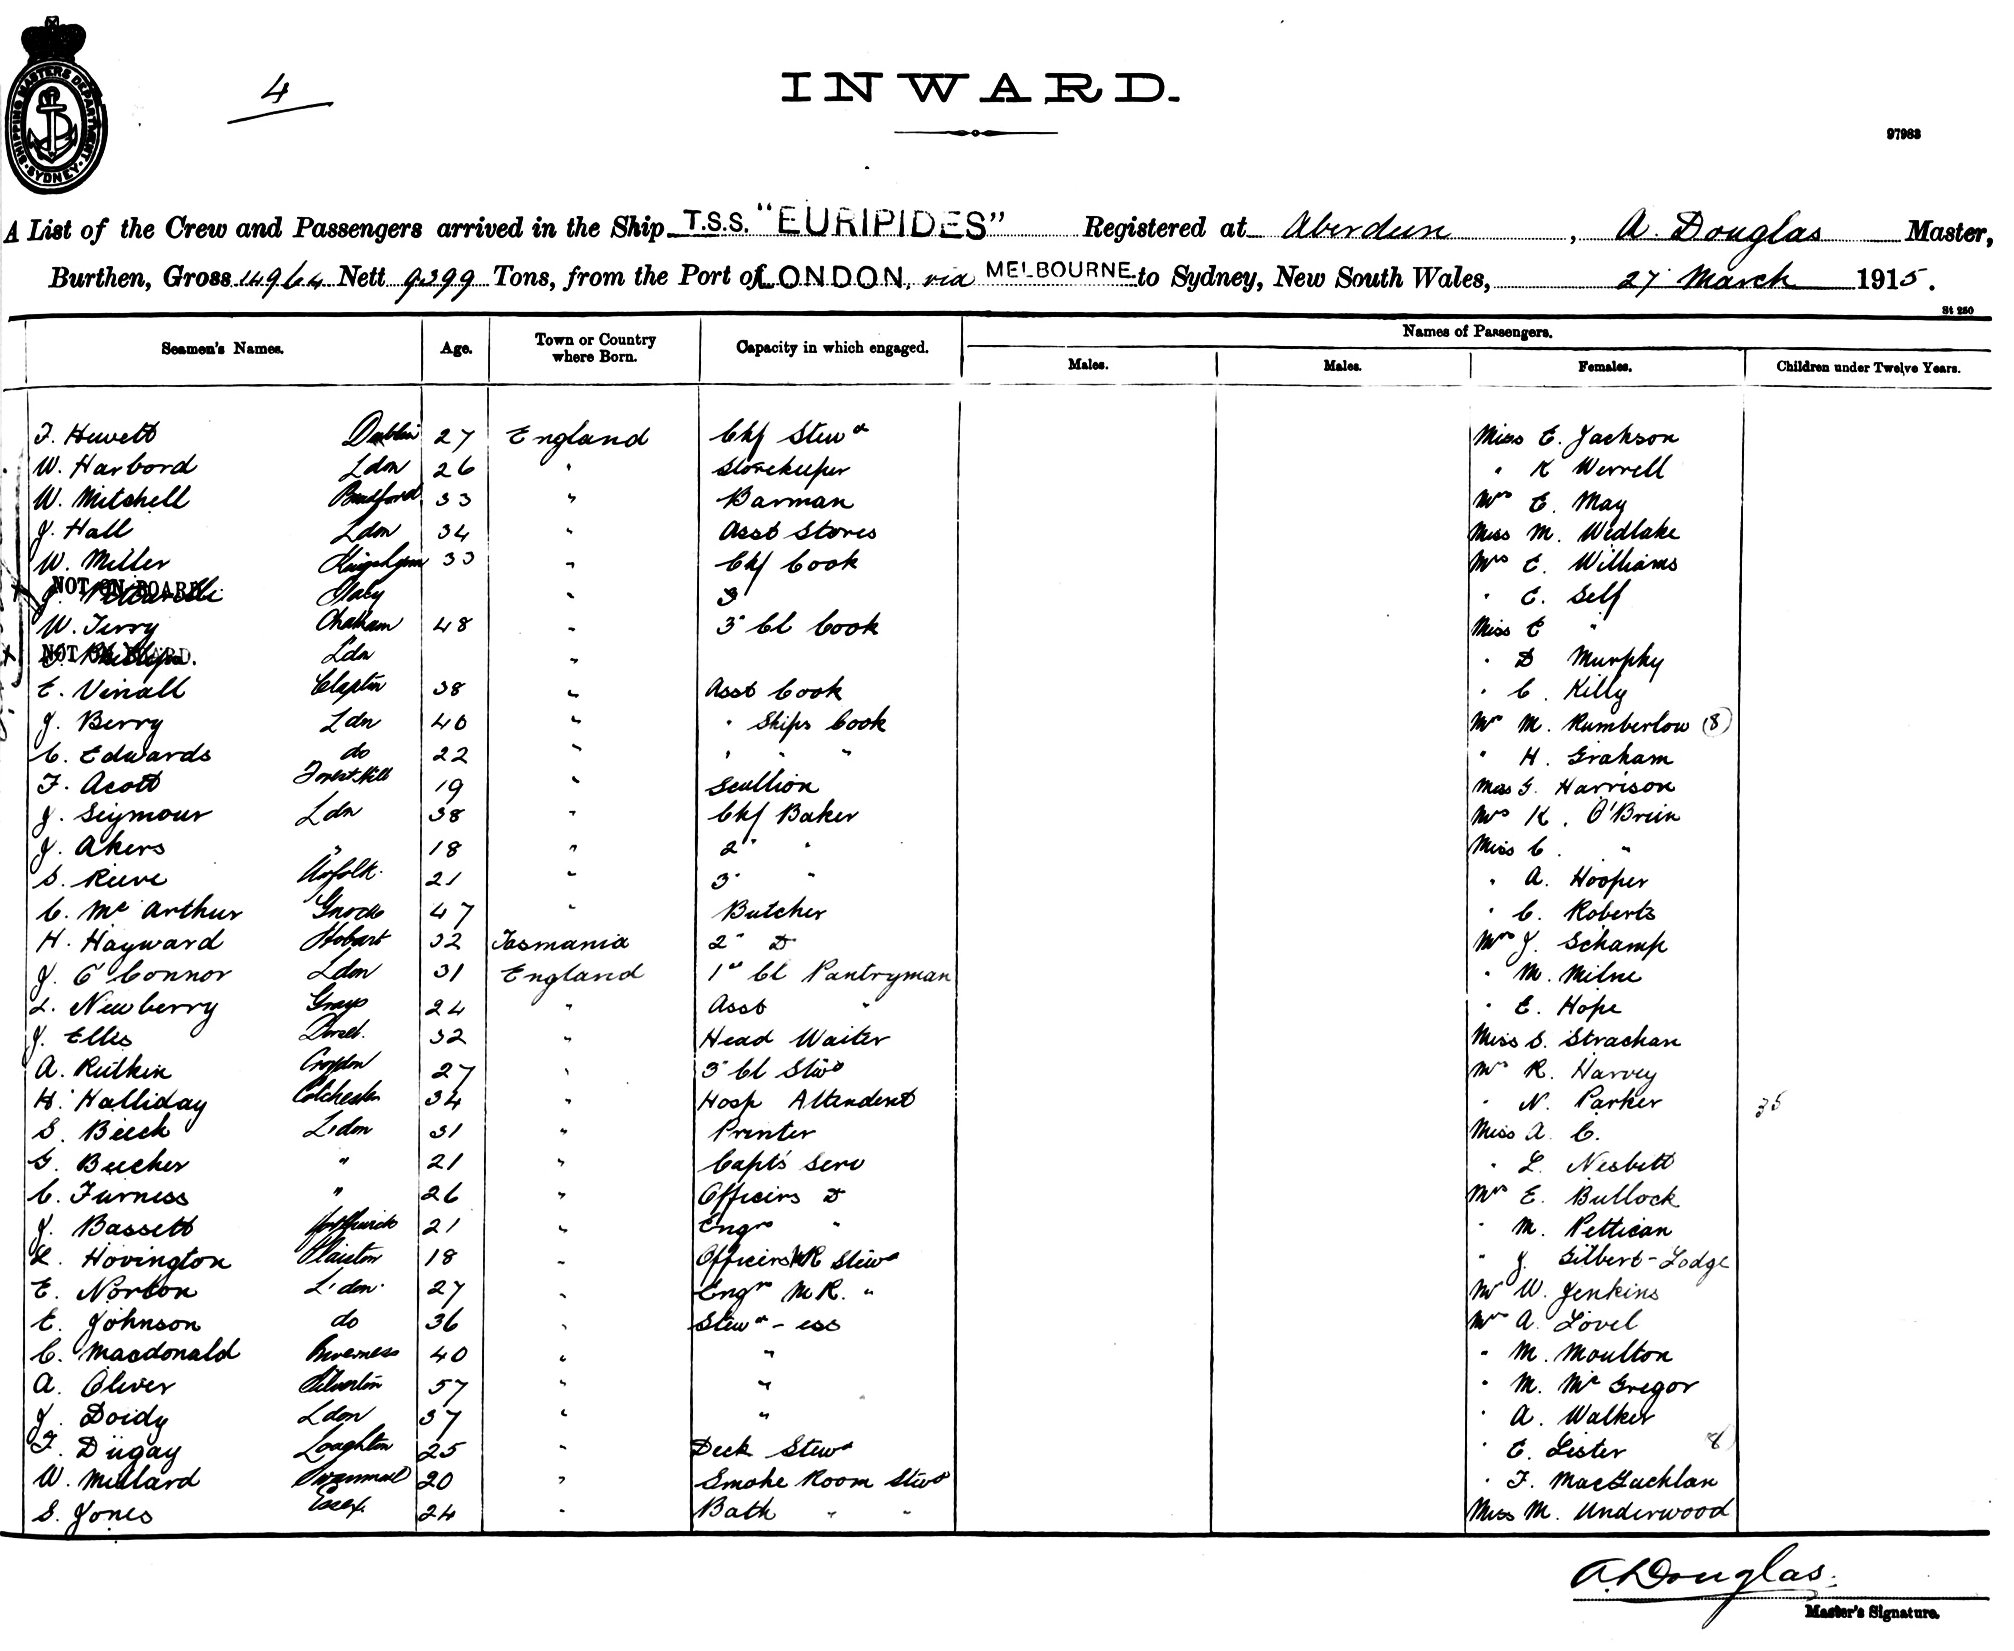 SHIPPING MASTERS DEPARTMENT SYDNEY
4
INWARD.
97983
A List of the Crew and Passengers arrived in the Ship T.S.S. "EURIPIDES" Registered at Aberdeen, A. Douglas Master,
Burthen, Gross 14964 Nett 9399 Tons, from the Port of LONDON, via MELBOURNE to Sydney, New South Wales, 27 March 1915.
St 250
Seamen's Names. Age. Town or Country where Born. Capacity in which engaged. Names of Passengers.
Males. Males. Females. Children under Twelve Years.
F. Hewett Dublin 27 England Chf Stewd Miss E. Jackson
W. Harbord Ldon 26 " Storekeeper " K Werrell
W. Mitchell Bradford 33 " Barman Mrs E. May
J. Hall Ldon 34 " Asst Stores Miss M. Widlake
W. Miller Kingslynn 33 " Chf Cook Mrs E. Williams
NOT ON BOARD. Italy " 3 " E. Self
W. Terry Chatham 48 " 3" Cl Cook Miss E "
NOT ON BOARD. Ldn " " D Murphy
E. Vinall Clapton 38 " Asst Cook " C. Killy
J. Berry Ldn 40 " " Ships Cook Mrs M. Rumberlow (8)
C. Edwards do 22 " " " " " H. Graham
F. Acott Forest Hill 19 " Scullion Miss G. Harrison
J. Seymour Ldn 38 " Chf Baker Mrs K. O'Brien
J. Akers " 18 " 2" " Miss C. "
S. Reeve Norfolk 21 " 3" " " A. Hooper
C. McArthur 47 " Butcher " C. Roberts
H. Hayward Hobart 32 Tasmania 2" D Mrs J. Schamp
J. O'Connor Ldon 31 England 1st Cl Pantryman " M. Milne
L. Newberry Grays 24 " Asst " " E. Hope
J. Ellis Dorset. 32 " Head Waiter Miss S. Strachan
A. Rutkin Croydon 27 " 3" Cl Stwd Mrs R. Harvey
H. Halliday Colchester 34 " Hosp Attendent " N. Parker 35
S. Beeck Ldon 31 " Printer Miss A. C.
G. Beecher " 21 " Capt's Serv " L. Nesbitt
C. Furness " 26 " Officers D Mrs E. Bullock
J. Bassett 21 " Engrs " " M. Pettican
L. Hovington Plaistow 18 " Officers MR Stewd " J. Gilbert-Lodge
E. Norton Ldon. 27 " Engrs M.R. " Mrs W. Jenkins
E. Johnson do 36 " Stewd-ess Mrs A. Lovel
C. Macdonald Inverness 40 " " " M. Moulton
A. Oliver Silverton 57 " " " M. McGregor
J. Doidy Ldon 37 " " " A. Walker
F. Dugay Loughton 25 " Deck Stewd " E. Lister 8
W. Millard 20 " Smoke Room Stwd " F. MacLachlan
S. Jones Essex. 24 " Bath " " Miss M. Underwood
A. Douglas.
Master's Signature.